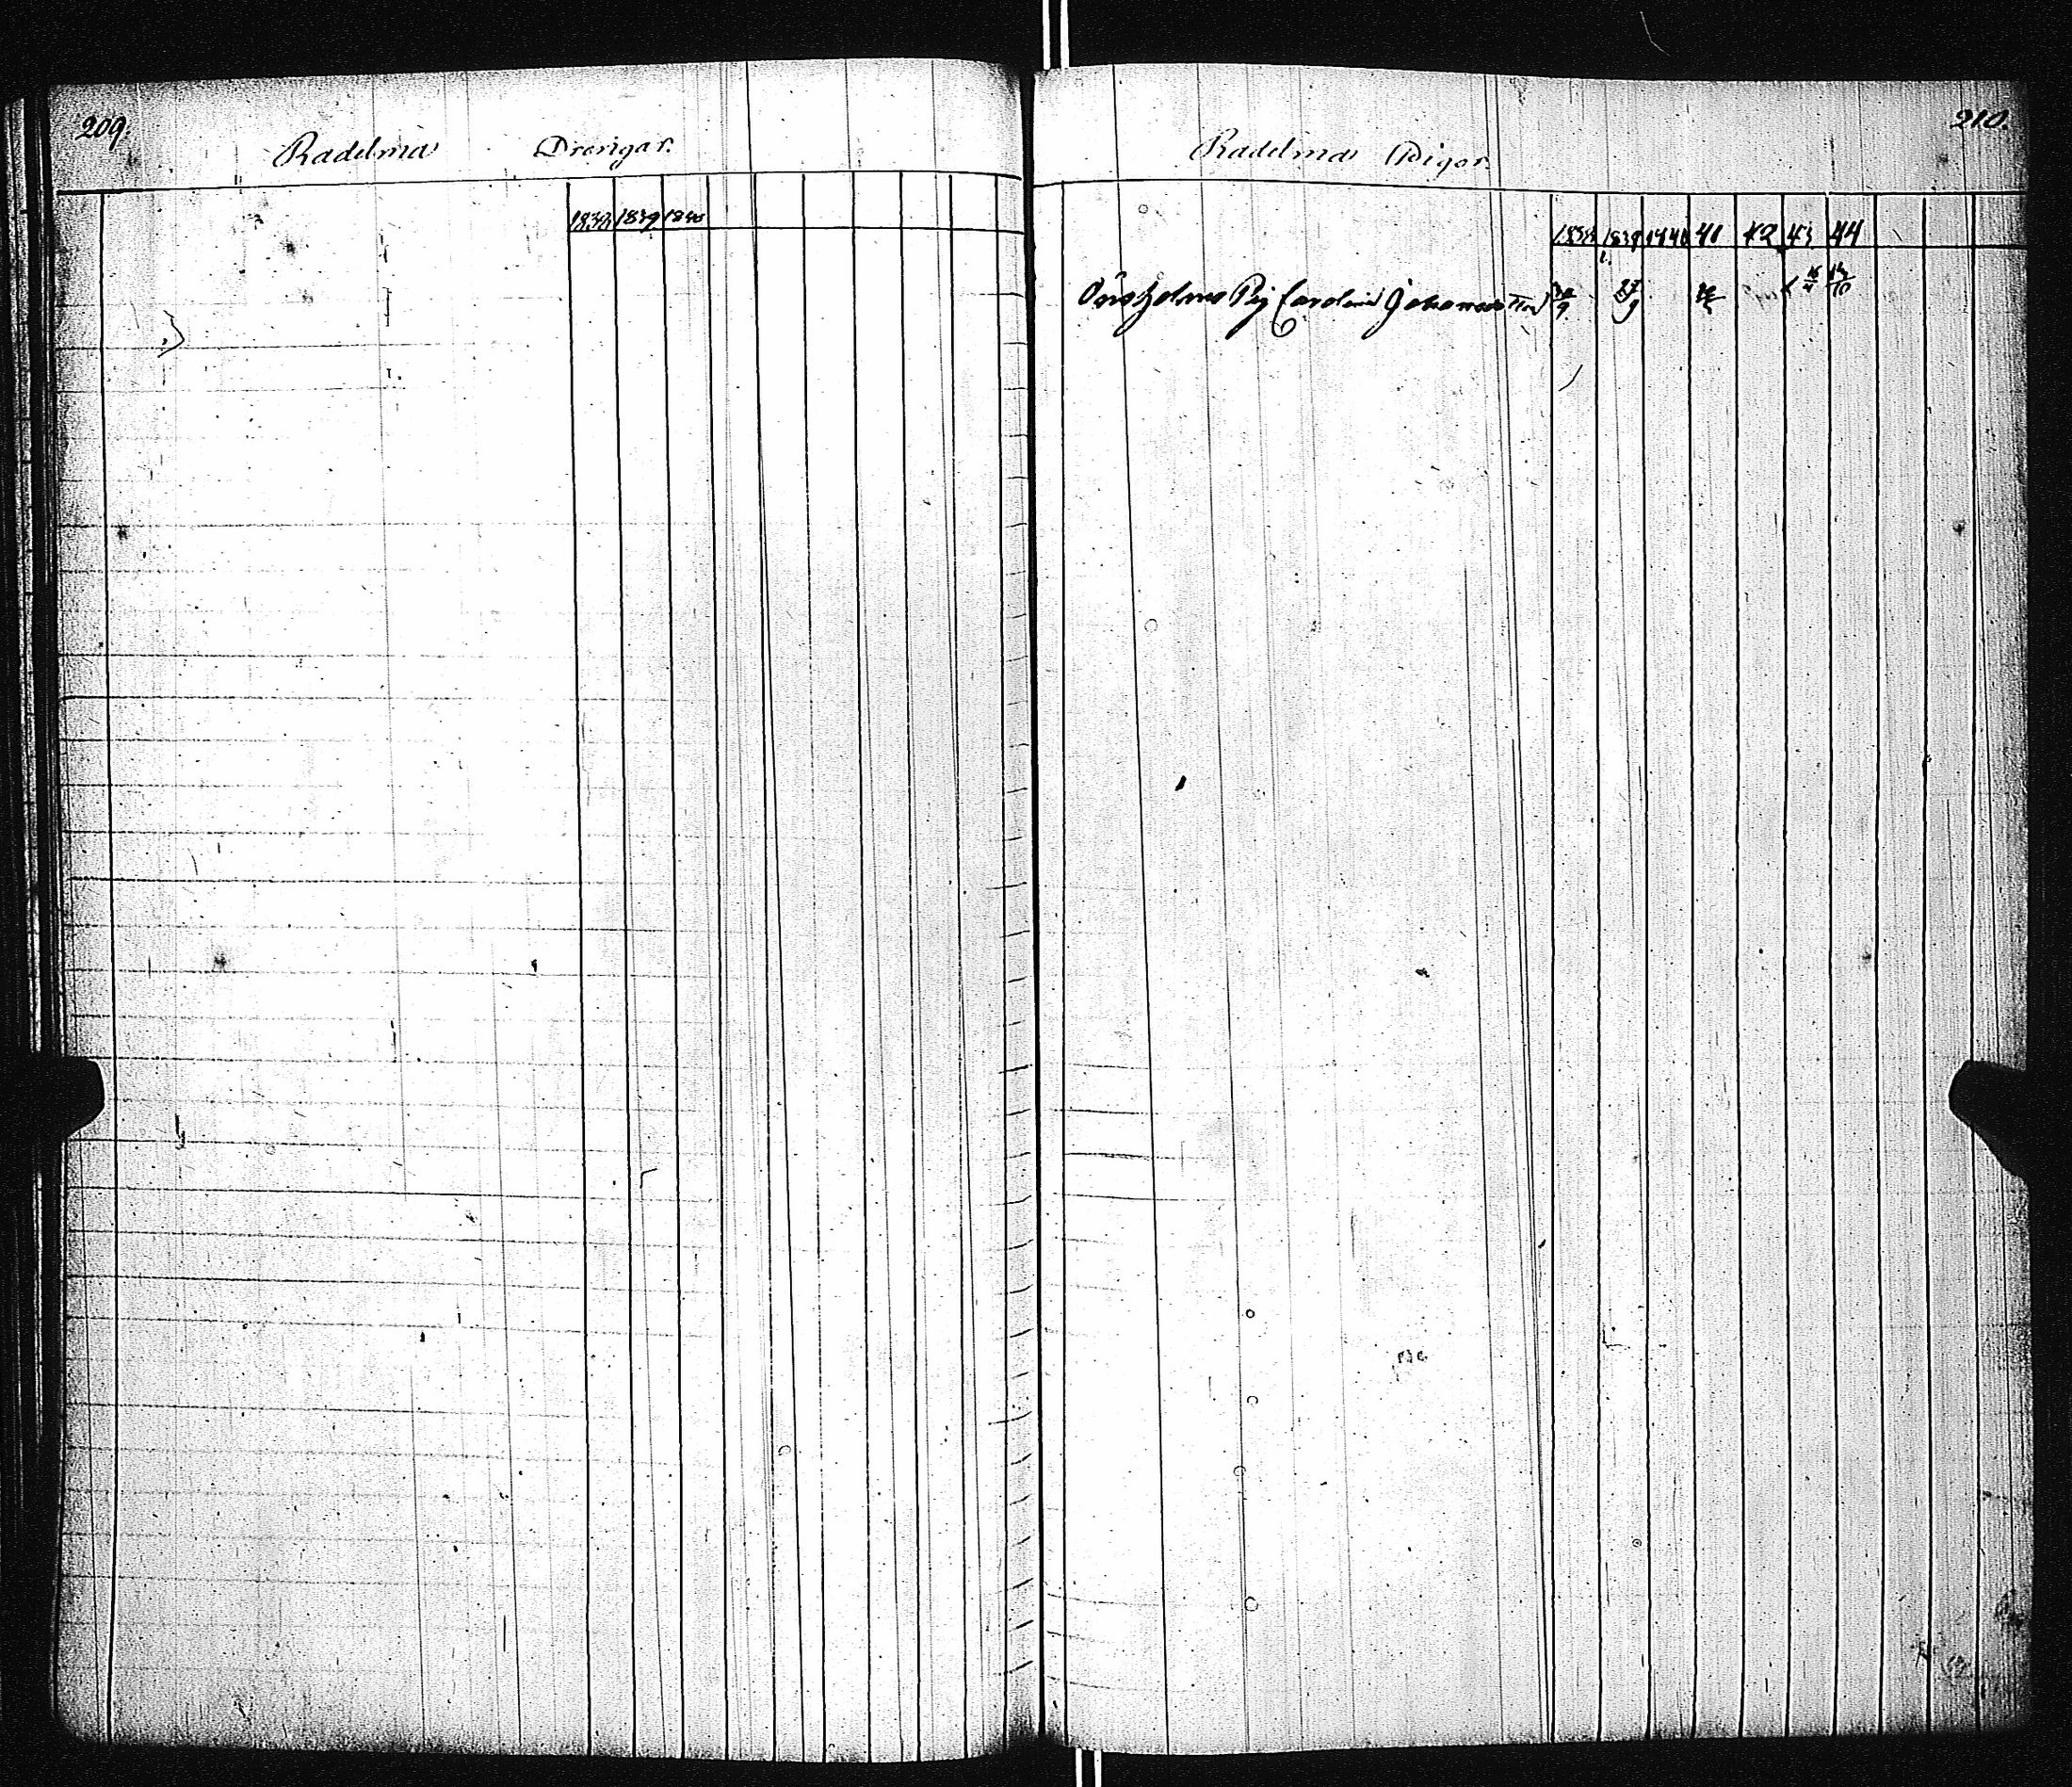 209.
Radelma Drängar.
1838 1839 1840
210.
Radelma Pigor.
1838 1839 1840 41 42 43 44
Pig Carolina Johansdr 30/9 27/9